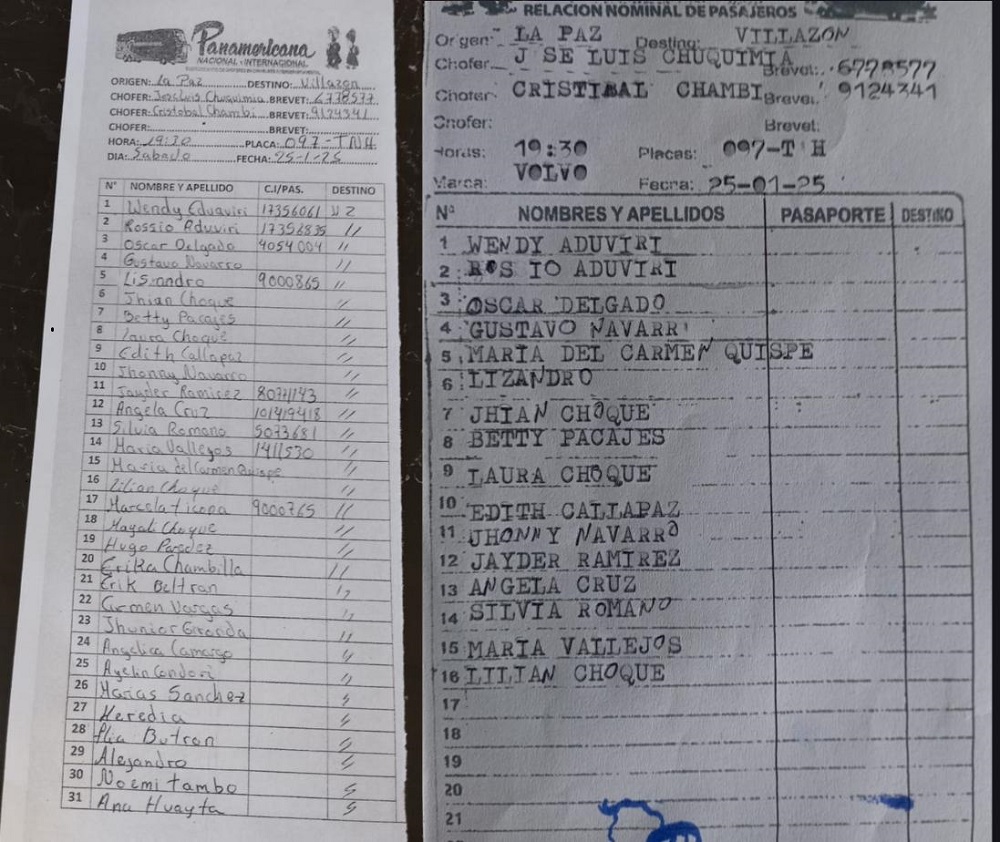 Panamericana
NACIONAL - INTERNACIONAL
ORIGEN: La Paz DESTINO: Villazon
CHOFER: Jose Luis Chuquimia BREVET: 6778577
CHOFER: Cristobal Chambi BREVET: 9124341
CHOFER: BREVET:
HORA: 19:30 PLACA: 097-TNH
DIA: Sabado FECHA: 25-1-25
N° NOMBRE Y APELLIDO C.I/PAS. DESTINO
1 Wendy Eduaviri 17356061 VZ
2 Rossio Aduviri 17356835 //
3 Oscar Delgado 4054004 //
4 Gustavo Navarro //
5 Lisandro 9000865 //
6 Jhian Choque //
7 Betty Pacajes //
8 Laura Choque //
9 Edith Callapaz //
10 Jhonny Navarro //
11 Jayder Ramirez 8071143 //
12 Angela Cruz 101419418 //
13 Silvia Romano 5073681 //
14 Maria Vallejos 1411530 //
15 Maria del Carmen Quispe //
16 Lilian Choque //
17 Marcela Ticona 9000765 //
18 Magali Choque //
19 Hugo Paredez //
20 Erika Chambilla //
21 Erik Beltran //
22 Carmen Vargas //
23 Jhunior Gironda //
24 Angelica Camargo //
25 Ayelin Condori //
26 Marias Sanchez //
27 Heredia //
28 Butron //
29 Alejandro //
30 Noemi tambo //
31 Ana Huayta //
RELACION NOMINAL DE PASAJEROS
Origen: LA PAZ Destino: VILLAZON
Chofer J SE LUIS CHUQUIMIA Brevet: 6778577
Chofer: CRISTIBAL CHAMBI Brevet: 9124341
Chofer: Brevet:
Horas: 19:30 Placas: 097-T H
Marca: VOLVO Fecha: 25-01-25
Nº NOMBRES Y APELLIDOS PASAPORTE DESTINO
1 WENDY ADUVIRI
2 ROS IO ADUVIRI
3 OSCAR DELGADO
4 GUSTAVO NAVARR
5 MARIA DEL CARMEN QUISPE
6 LIZANDRO
7 JHIAN CHOQUE
8 BETTY PACAJES
9 LAURA CHOQUE
10 EDITH CALLAPAZ
11 JHONNY NAVARRO
12 JAYDER RAMIREZ
13 ANGELA CRUZ
14 SILVIA ROMANO
15 MARIA VALLEJOS
16 LILIAN CHOQUE
17
18
19
20
21